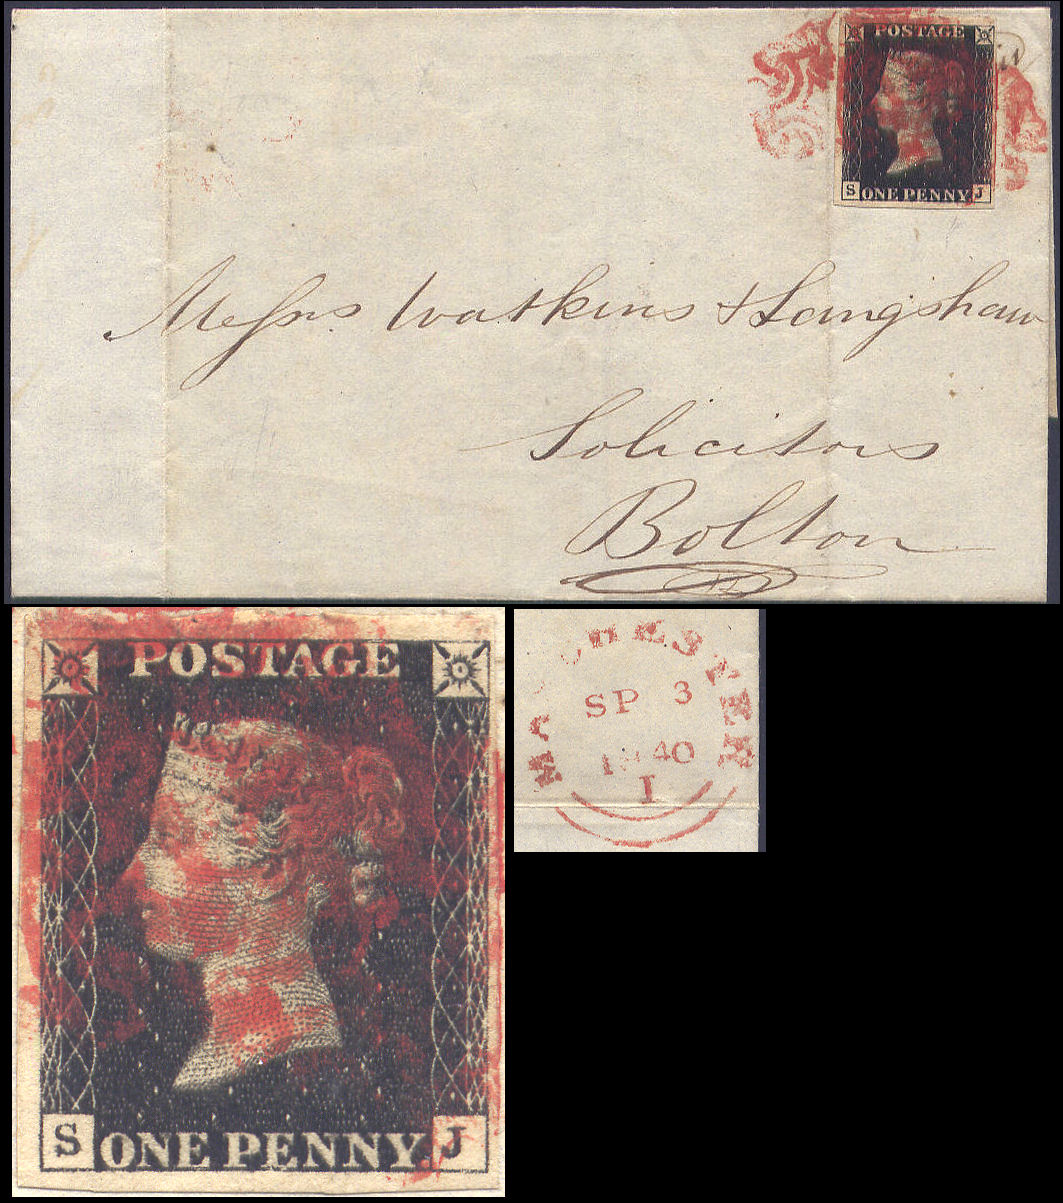 POSTAGE
S ONE PENNY J
Messrs Watkins & Langshaw
Solicitors
Bolton
POSTAGE
S ONE PENNY J
MANCHESTER
SP 3
1840
I